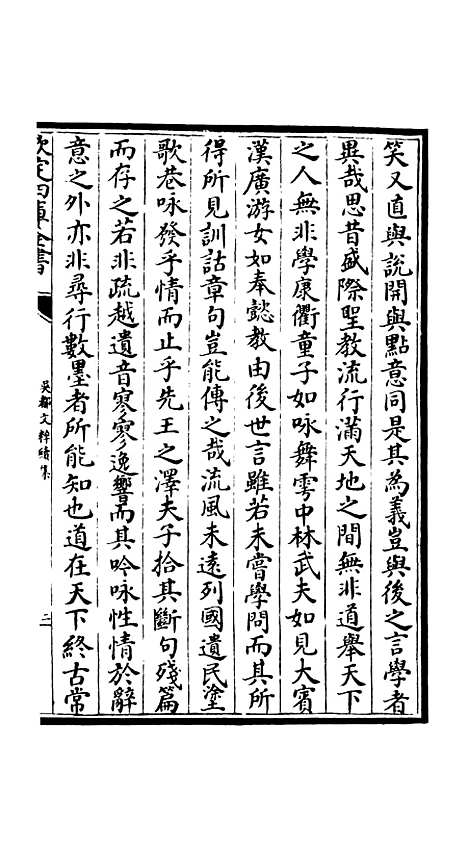 笑又直與說開與點意同是其為義豈與後之言學者
異哉思昔盛際聖教流行滿天地之間無非道舉天下
之人無非學康衢童子如咏舞雩中林武夫如見大賓
漢廣游女如奉懿教由後世言雖若未嘗學問而其所
得所見訓詁章句豈能傳之哉流風未遠列國遺民塗
歌巷咏發乎情而止乎先王之澤夫子拾其斷句殘篇
而存之若非疏越遺音寥寥逸響而其吟咏性情於辭
意之外亦非尋行數墨者所能知也道在天下終古常
欽定四庫全書
吳都文粹續集
二